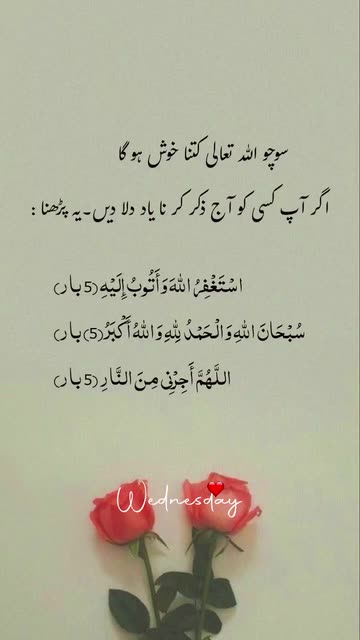 سوچو اللہ تعالی کتنا خوش ہو گا
اگر آپ کسی کو آج ذکر کر نا یاد دلا دیں۔یہ پڑھنا :
اسْتَغْفِرُ اللهَ وَأَتُوبُ إِلَيْهِ (5 بار)
سُبْحَانَ اللهِ وَالْحَمْدُ لِلّٰهِ وَاللهُ أَكْبَرُ (5) بار)
اللَّهُمَّ أَجِرْنِي مِنَ النَّارِ (5 بار)
Wednesday